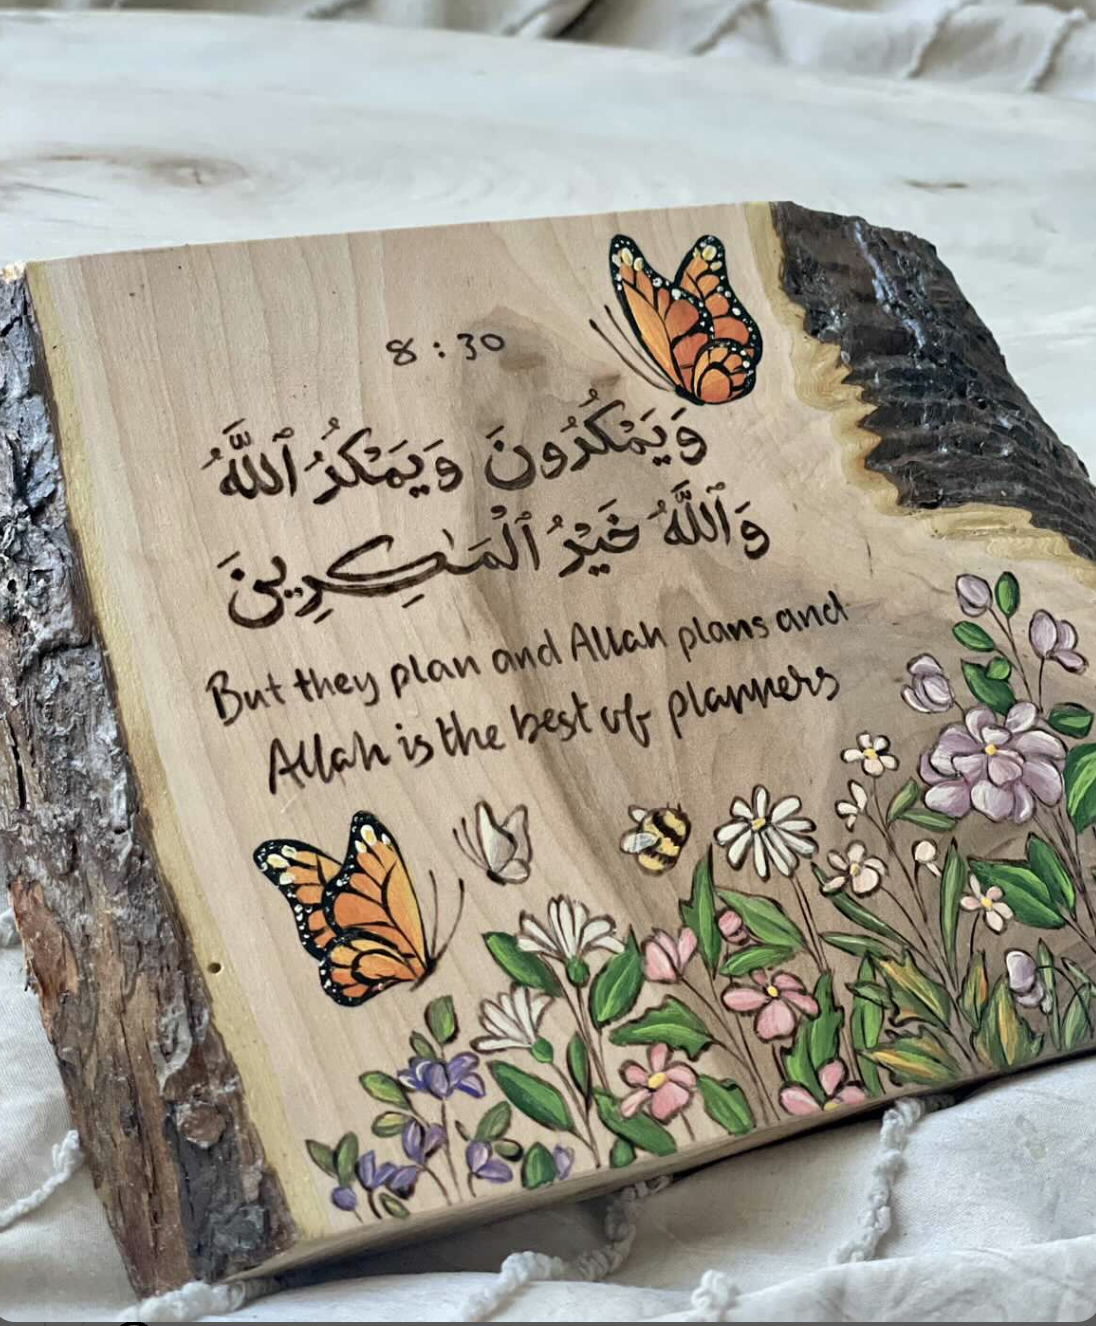 8:30
وَيَمْكُرُونَ وَيَمْكُرُ ٱللَّهُ
وَٱللَّهُ خَيْرُ ٱلْمَـٰكِرِينَ
But they plan and Allah plans and
Allah is the best of planners